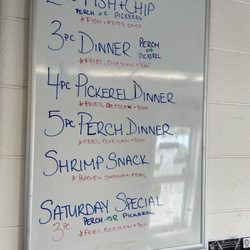 FISH + CHIP
PERCH OR PICKEREL
* FISH + FRIES ONLY
3pc DINNER PERCH OR PICKEREL
* FRIES, COLESLAW + BUN
4pc PICKEREL DINNER
* FRIES, COLESLAW + BUN
5pc PERCH DINNER
* FRIES, COLESLAW + BUN
SHRIMP SNACK
* POPCORN SHRIMP + FRIES
SATURDAY SPECIAL
3pc PERCH OR PICKEREL
* FRIES, COLESLAW + BUN